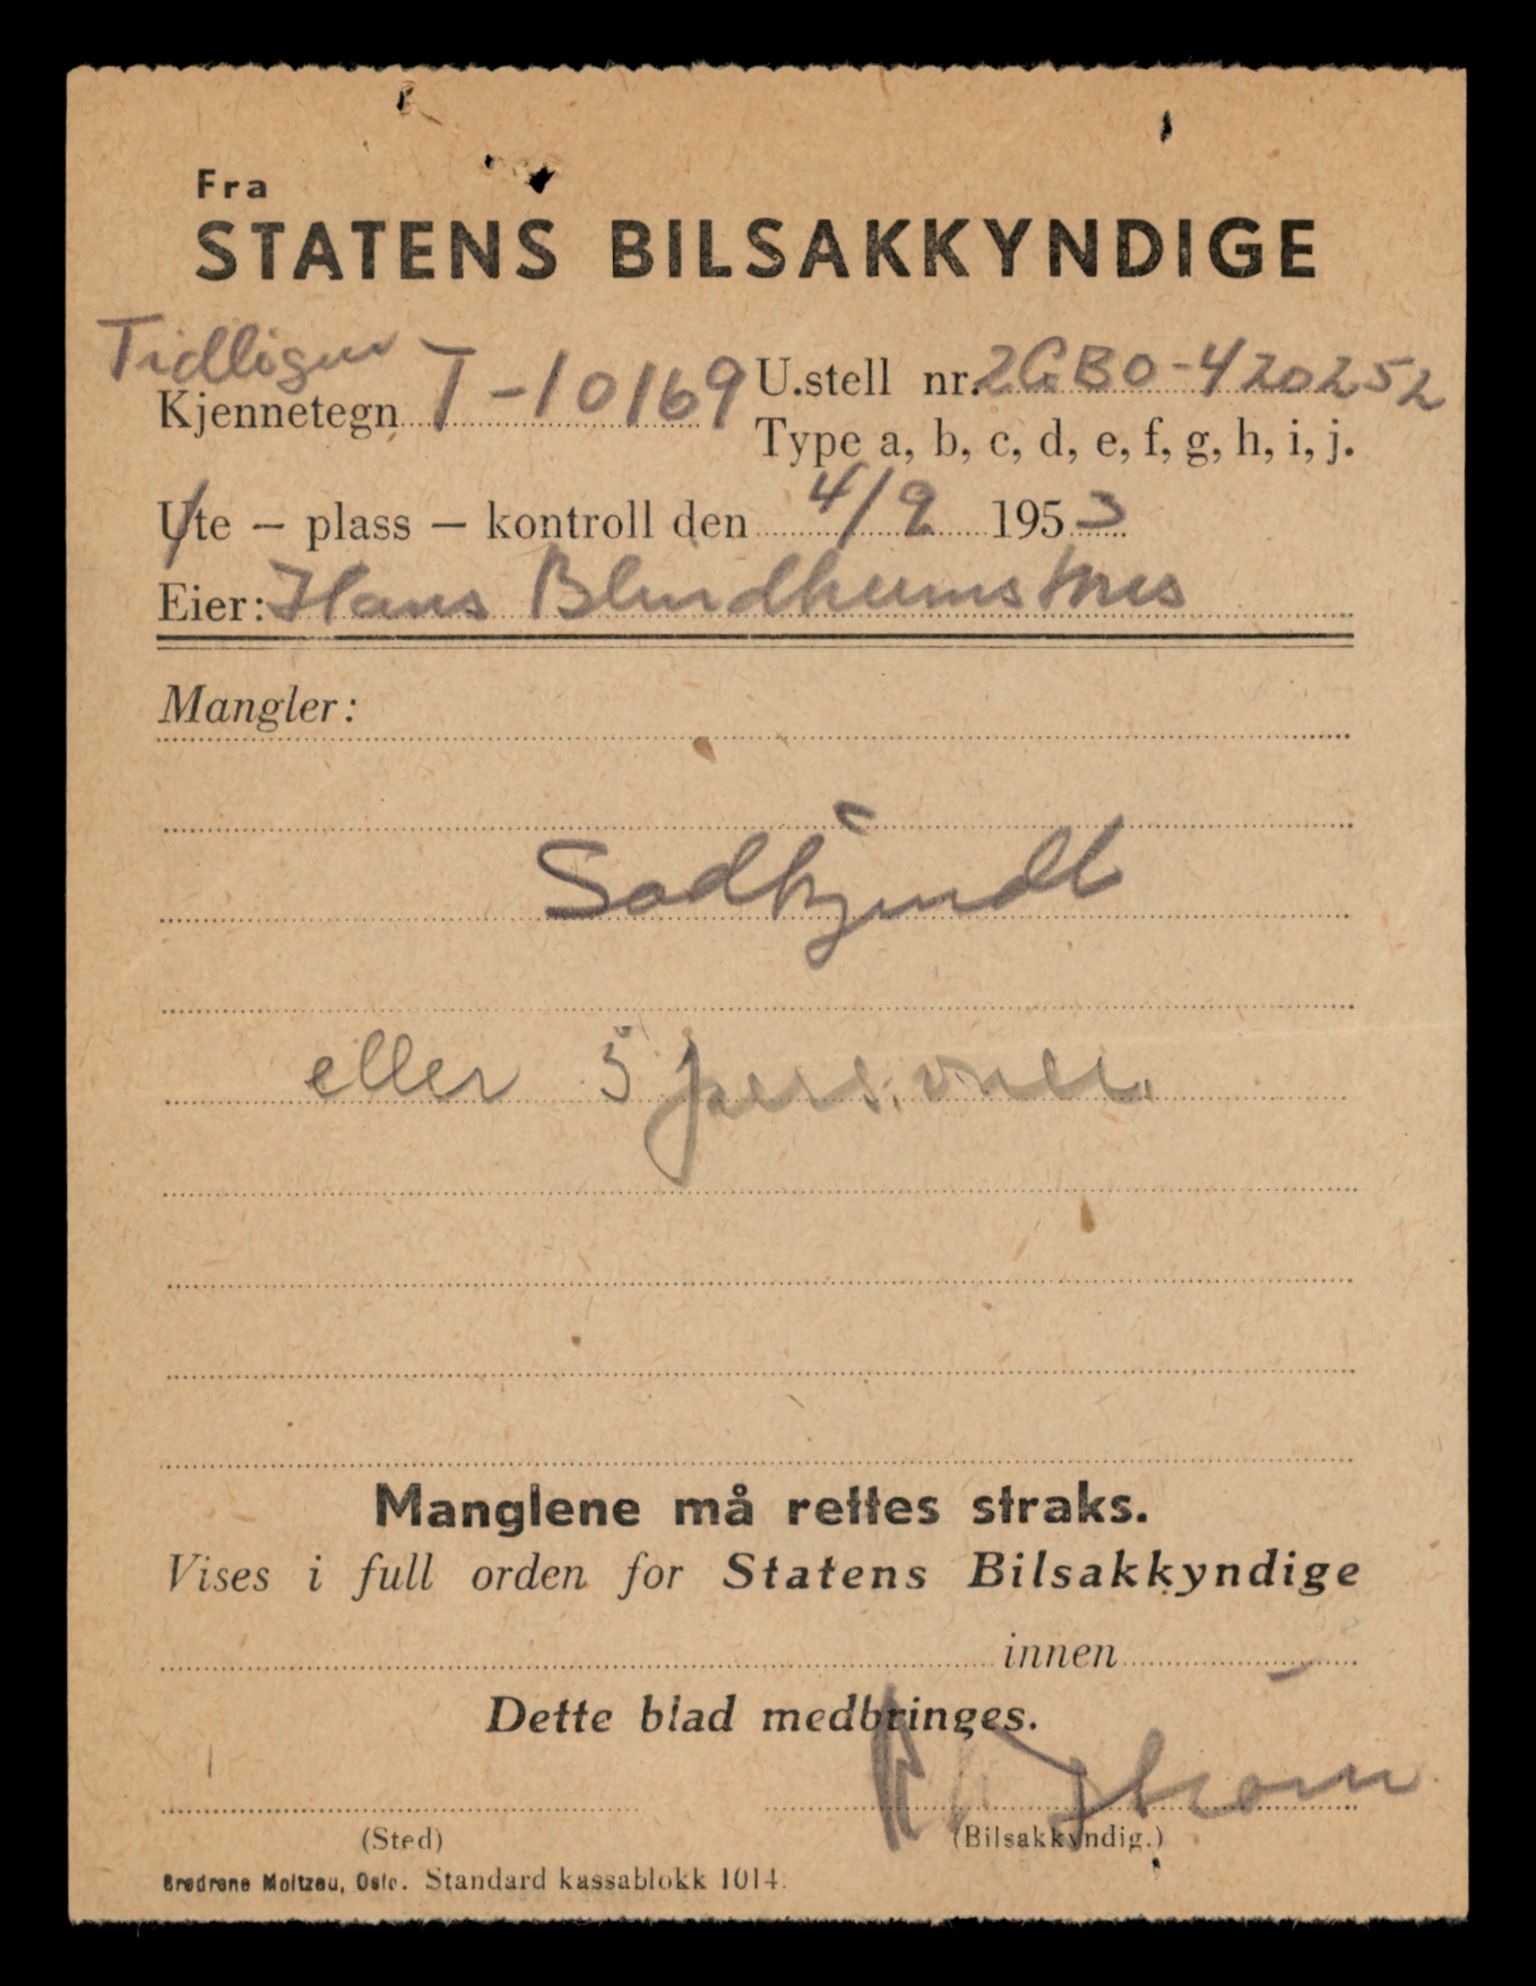 Fra
STATENS BILSAKKYNDIGE
Tidligere
Kjennetegn T-10169 U.stell nr. 2GB0-420252
Type a, b, c, d, e, f, g, h, i, j.
Ute – plass – kontroll den 4/9 1953
Eier: Hans Blindheimsnes
Mangler:
Godkjendt
eller 5 pers.
Manglene må rettes straks.
Vises i full orden for Statens Bilsakkyndige
innen
Dette blad medbringes.
(Sted) (Bilsakkyndig.)
Brødrene Moltzau, Oslo. Standard kassablokk 1014.